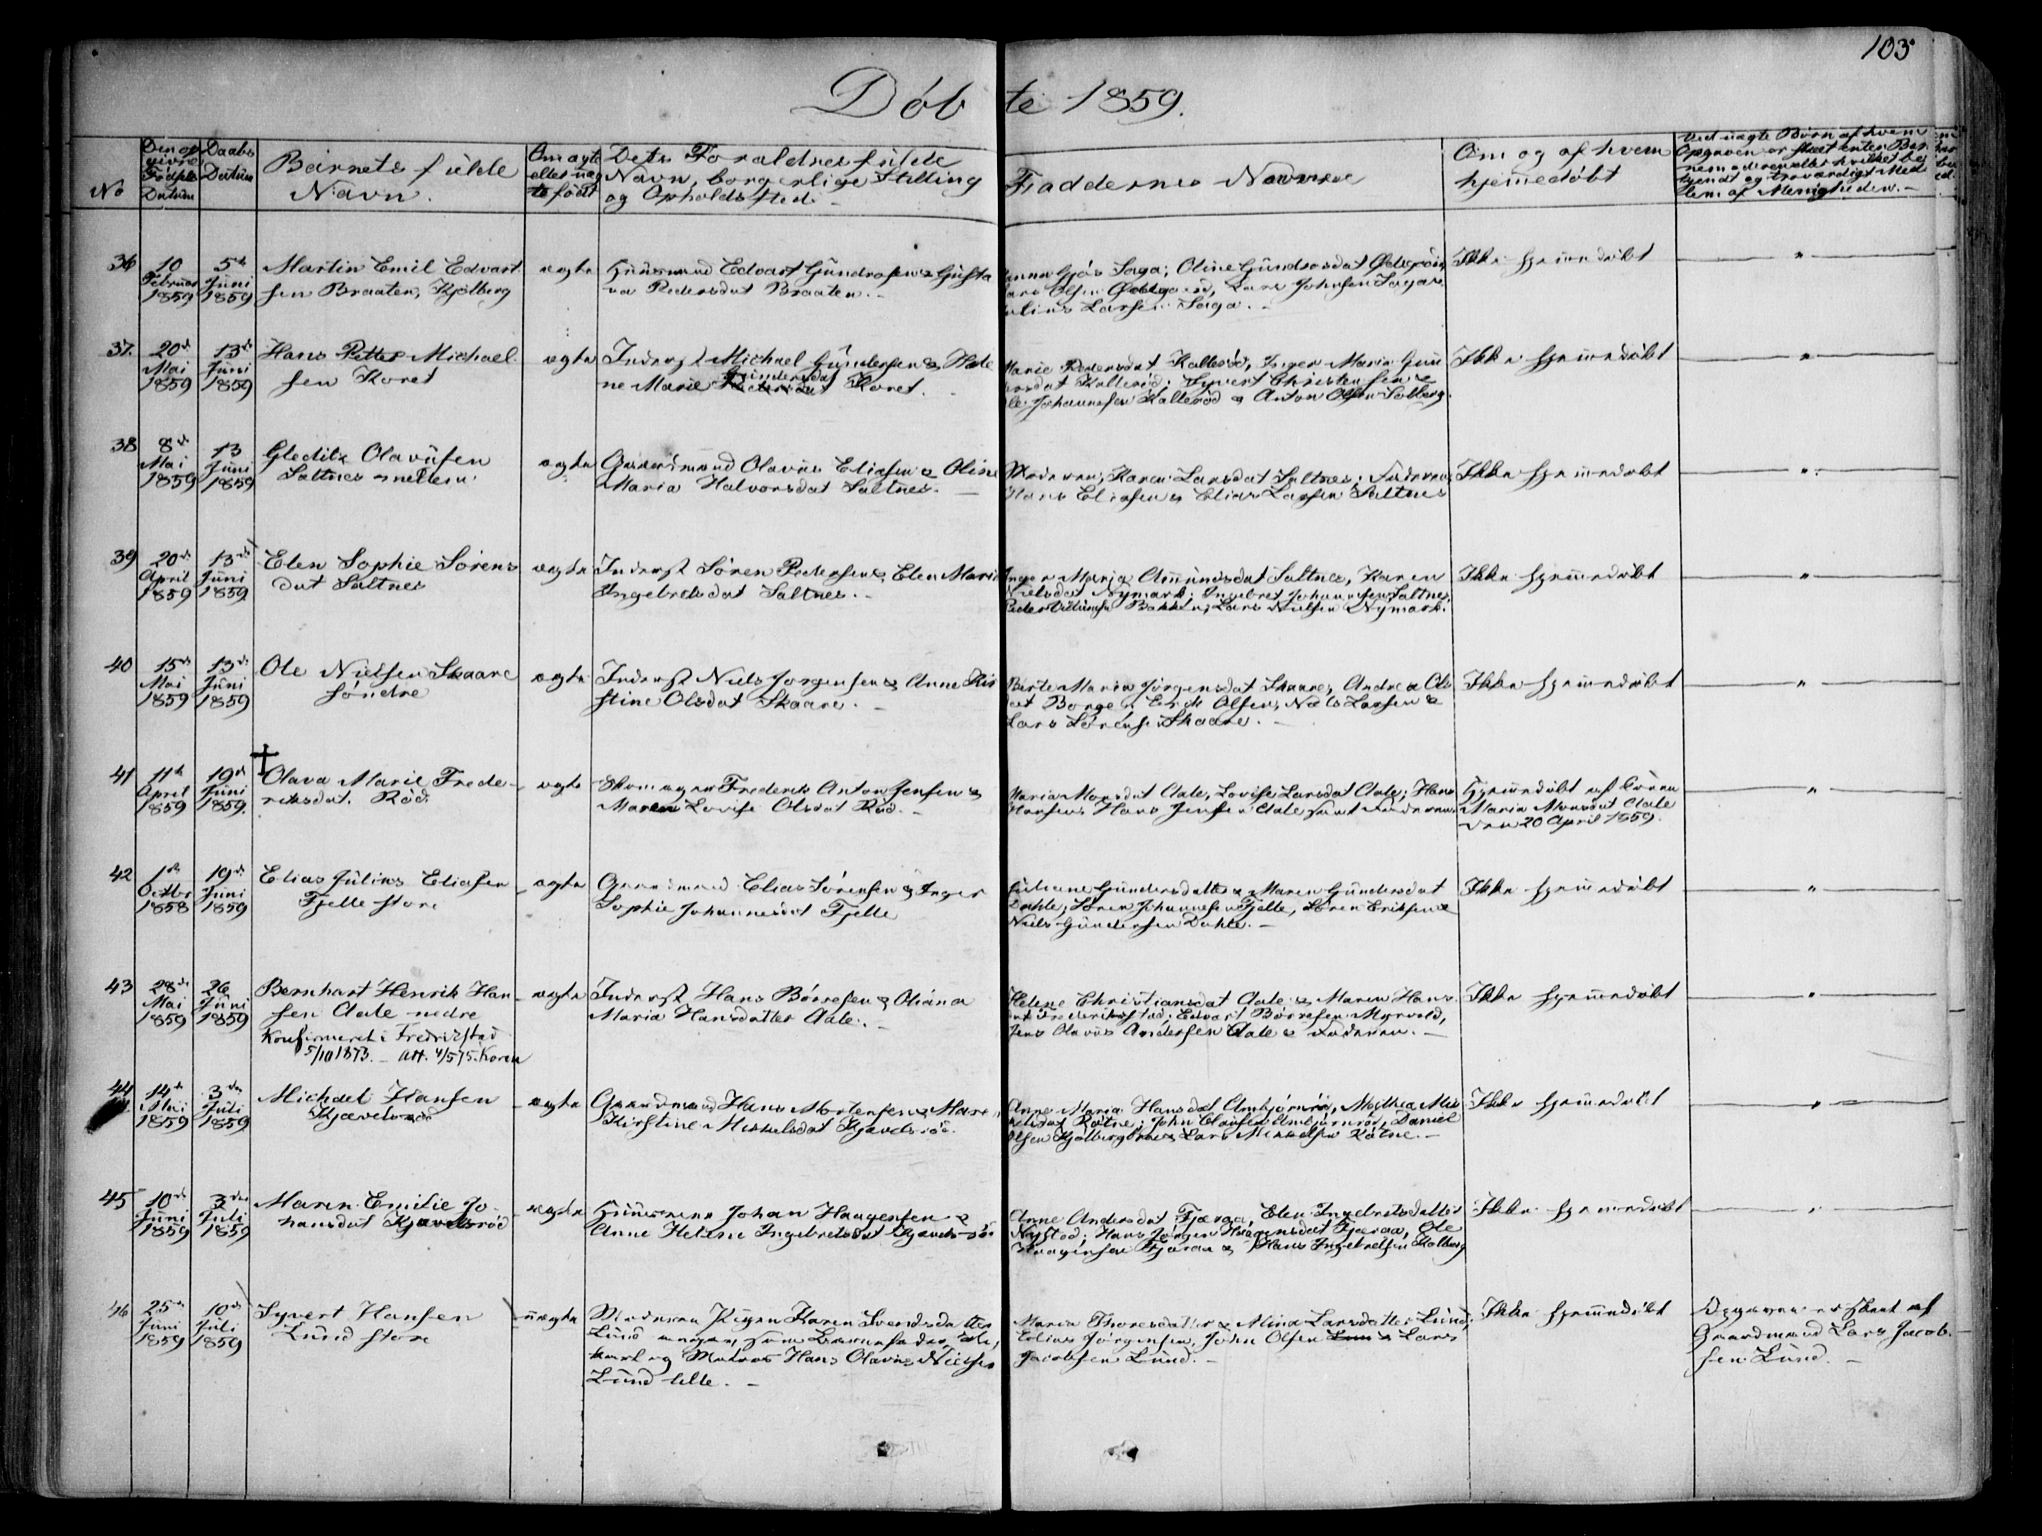 103
Döbte 1859.
No
Den opgivne Fødsels Datum
Daabs Datum
Barnets fulde Navn.
Om ægte eller uægte født
Dets Forældres fulde Navn, borgerlige Stilling og Opholdssted.
Faddernes Navne
Om og af hvem hjemmedøbt
Ved uægte Børn af hvem Opgaven er skeet enten Barnemoderen eller hvilket bekjendt og troværdigt Medlem af Menigheden.
36
10 Februar 1859
5te Juni 1859
Martin Emil Edvart
sen Braaten, Kjølberg
ægte
Huusmand Edvart Gundersen & Gusta
va Pedersdat Braaten.
Saga; Oline
Lars Johnsen Saga &
Julius Larsen Saga.
Ikke hjemmedøbt
37.
20de Mai 1859
13de Juni 1859
Hans Petter Michael
sen Koret
ægte
Inderst Michael Gundersen & Hele
ne Marie Gundersdat Koret.
Marie Pedersdat Kallerød, Inger Maria Gun
dersdat Kallerød; Syvert Christensen &
Ole Johannesen Kallerød & Anton Olsen Solberg.
Ikke hjemmedøbt
38
8de Mai 1859
13 Juni 1859
Gleditz Olavusen
Saltnes mellem.
ægte
Gaardmand Olavus Eliasen & Oline
Maria Halvorsdat Saltnes.
Moderen; Karen Larsdat Saltnes; Faderen
Hans Eliasen & Elias Larsen Saltnes
Ikke hjemmedøbt
39
20de April 1859
13de Juni 1859
Elen Sophie Sørens
dat Saltnes
ægte
Inderst Søren Pedersen & Elen Marie
Ingebretsdat Saltnes.
Inger Marie Amundsdat Saltnes, Karen
Nielsdat Nymark; Ingebret Johannesen Saltnes,
Peder Bakken, Lars Nielsen Nymark.
Ikke hjemmedøbt
40
15de Mai 1859
13de Juni 1859
Ole Nielsen Skaare
søndre
ægte
Inderst Niels Jorgensen & Anne Kir
stine Olsdat Skaare.
Berte Maria Jörgensdat Skaare, Andrea Ols
dat Borge, Erik Olsen, Niels Larsen &
Lars Sörensen Skaare.
Ikke hjemmedøbt
41
11te April 1859
19de Juni 1859.
Olava Marie Frede-
riksdat. Röd.
ægte
Skomager Frederik Anton Jensen &
Maren Lovise Olsdat Röd.
Maria Monsdat Aale, Lovise Larsdat Aale; Hans
Hansen, Hans Jensen Aale samt Faderen.
Hjemmedøbt af
Maria Monsdat Aale
den 20 April 1859.
42
1ste Octbr 1858
19de Juni 1859
Elias Julius Eliasen
Fjelle store
ægte
Gaardmand Elias Sørensen & Inger
Sophie Johannesdat Fjelle
Juliane Gundersdatter & Maren Gundersdat
Dahle, Søren Johannesen Fjelle, Søren Eriksen &
Niels Gundersen Dahle.
Ikke hjemmedøbt
43
28de Mai 1859
26 Juni 1859
Bernhart Henrik Han
sen Aale nedre
Konfirmeret i Fredrikstad
5/10 1873. - Att. 4/5 75. Koren
ægte
Inderst Hans Börresen & Oliana
Maria Hansdatter Aale.
Helene Christiansdat Aale & Maren Hans
dat Frederikstad; Edvart Börresen Myrvold,
Jens Olavus Andersen Aale & Faderen.
Ikke hjemmedøbt
44
14de Mai 1859
3die Juli 1859
Michael Hansen
Kjævelsrød
ægte
Gaardmand Hans Mortensen & Maren
Kirstine Mikkelsdat Kjævelsrød.
Anne Maria Hansdat Ambjørnrød, Mathea Mik
kelsdat Røtne; John Olausen Ambjørnrød, Daniel
Olsen Kjølberg & Lars Mikkelsen Røtne.
Ikke hjemmedøbt
45
10de Juni 1859
3die Juli 1859
Maren Emilie Jo-
hansdat Kjævelsrød
ægte
Huusmand Johan Haagensen &
Anne Helene Ingebretsdat Kjævelsrød
Anne Andersdat Fjæraa, Elen Ingebretsdatter
Nysted; Hans Jørgen Fjæraa, Ole
Haagensen Fjæraa & Hans Ingebretsen Kolberg
Ikke hjemmedøbt
46
25de Juni 1859
10de Juli 1859
Syvert Hansen
Lund store
uægte
Moderen Pigen Karen Svendsdatter
Lund angav som Barnefader,
karl og Matros Hans Olavus Nielsen
Lund lille.
Maria Thoresdatter & Alina Larsdatter Lund,
Elias Jørgensen, John Olsen & Lars
Jacobsen Lund.
Ikke hjemmedøbt
Opgaven er skeet af
Gaardmand Lars Jacob-
sen Lund.